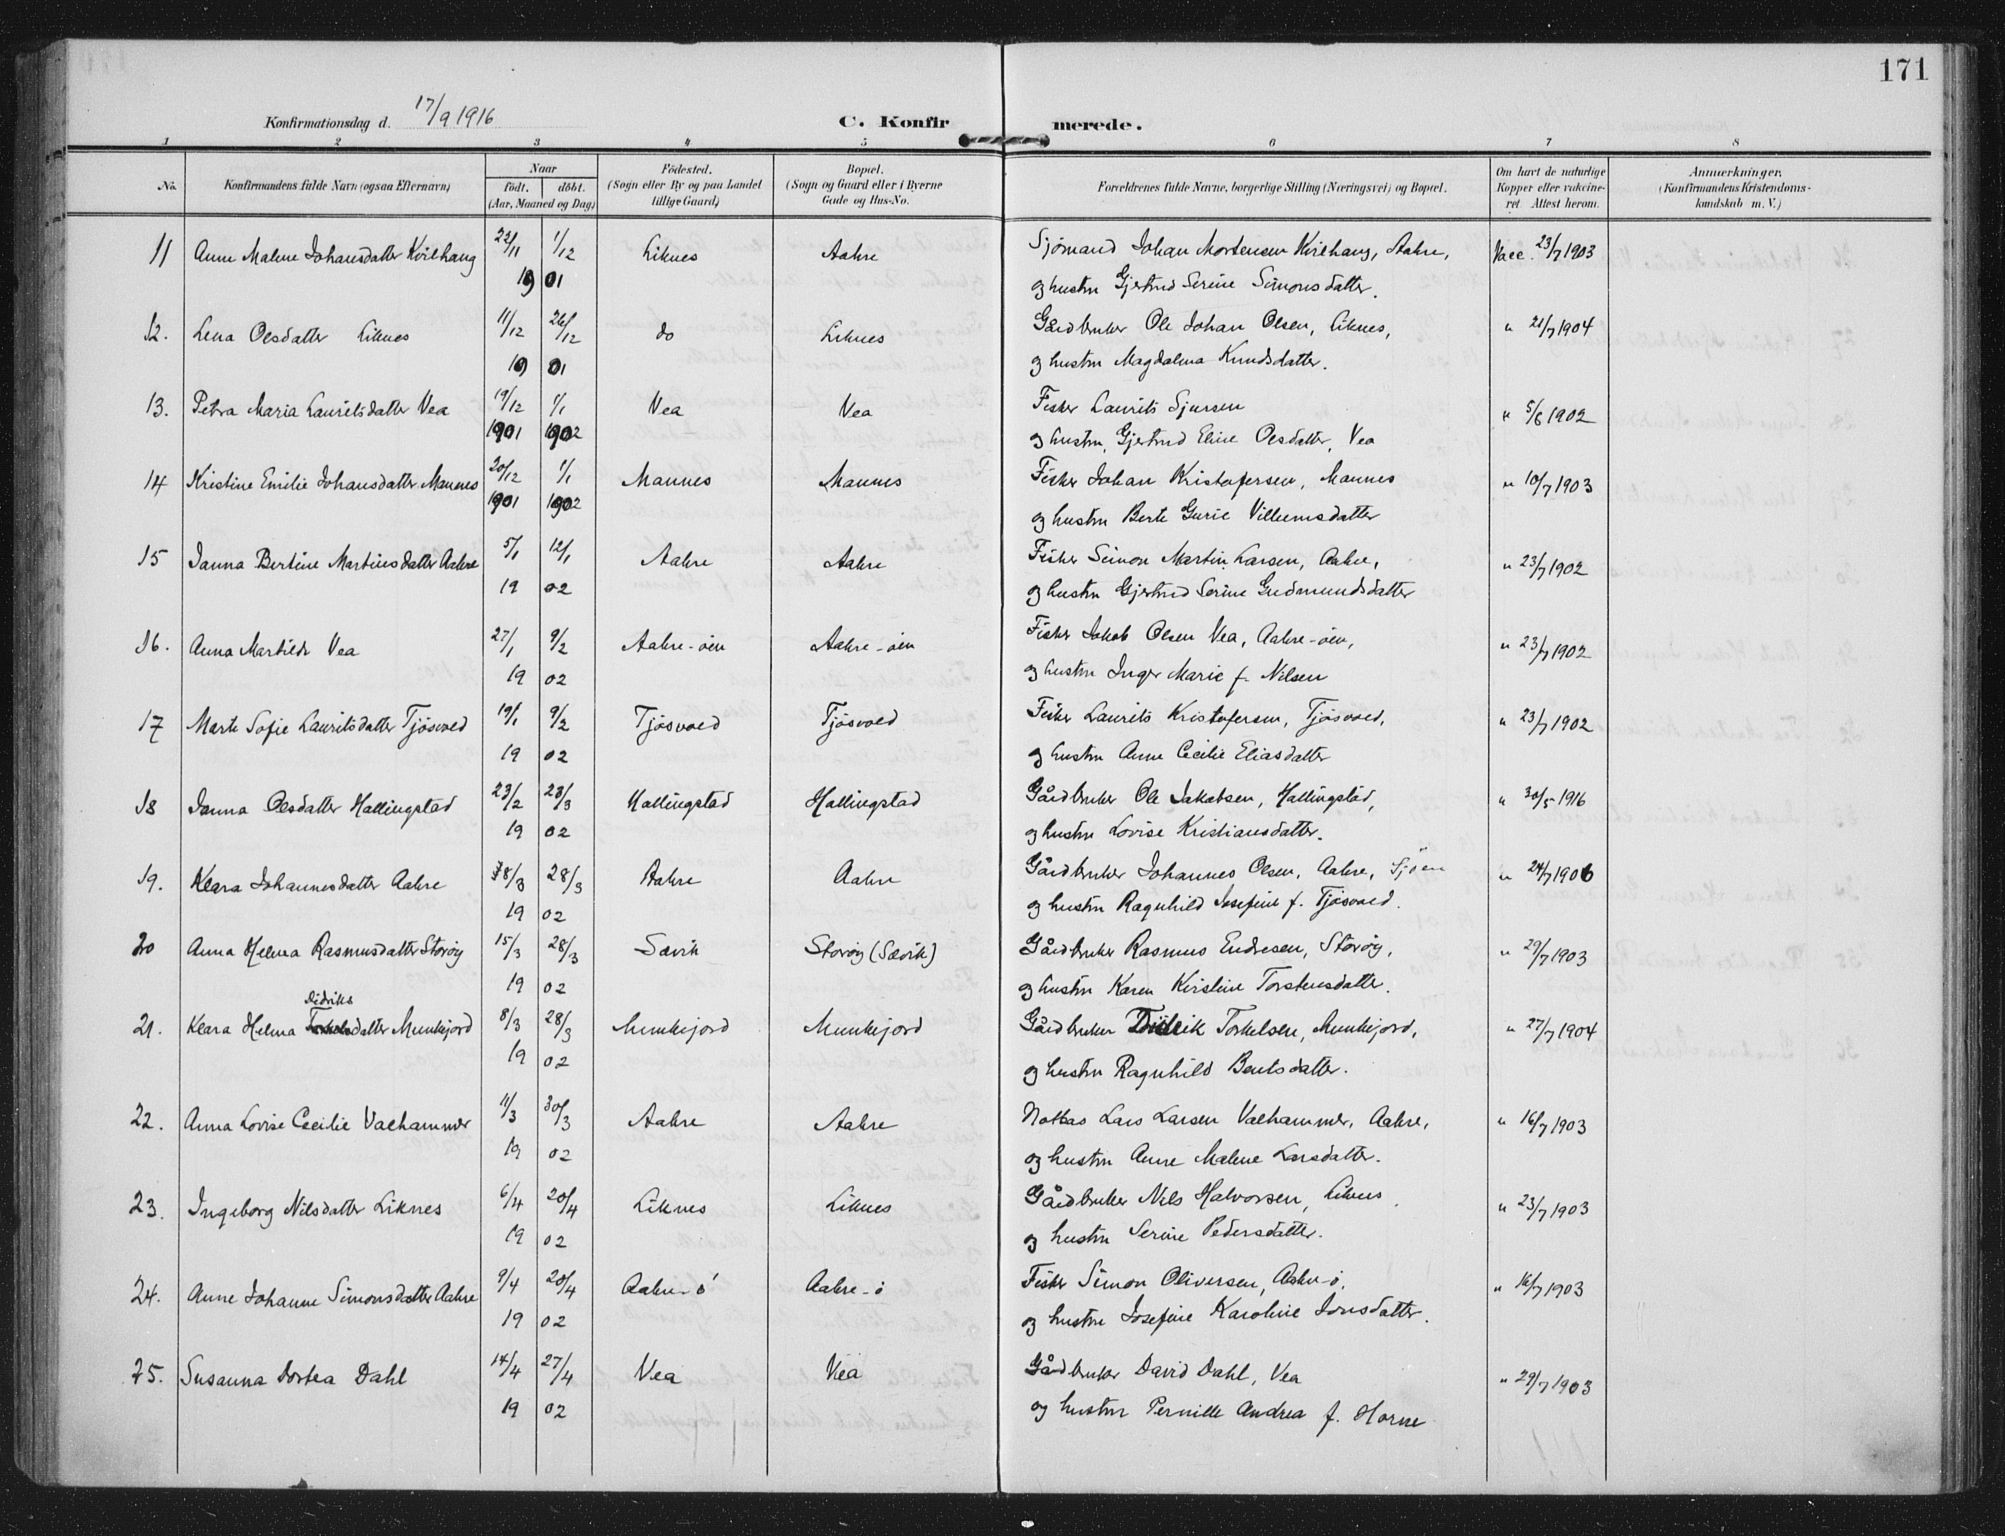 171
Konfirmationsdag d. 17/9 1916
C. Konfirmerede.
1 2 3 4 5 6 7 8
No. Konfirmandens fulde Navn (ogsaa Efternavn) Naar født. døbt. (Aar, Maaned og Dag) Fødested. (Sogn eller By og paa Landet tillige Gaard) Bopæl. (Sogn og Gaard eller i Byerne Gade og Hus-No. Forældrenes fulde Navne, borgerlige Stilling (Næringsvei) og Bopæl. Om havt de naturlige Kopper eller vaccineret. Attest herom. Anmærkninger. (Konfirmandens Kristendomskundskab m. V.)
11 Anne Malene Johansdatter Kvilhaug 22/11 1/12 Liknes Aakre Sjömand Johan Mortensen Kvilhaug, Aakre, Vacc. 23/7 1903
19 01 og hustru Gjertrud Serine Simonsdatter.
12. Lena Olsdatter Liknes 11/12 26/12 do Liknes Gårdbruker Ole Johan Olsen, Liknes, " 21/7 1904
19 01 og hustru Magdalena Knudsdatter.
13. Petra Maria Lauritsdatter Vea 19/12 1/1 Vea Vea Fisker Laurits Sjursen " 5/6 1902
1901 1902 og hustru, Gjertrud Eline Olsdatter, Vea
14 Kristine Emilie Johansdatter Mannes 20/12 1/1 Mannes Mannes Fisker Johan Kristofersen, Mannes " 10/7 1903
1901 1902 og hustru Berte Gurie Villumsdatter
15 Janna Bertine Martinsdatter Aakre 5/1 12/1 Aakre Aakre Fisker Simon Martin Larsen, Aakre, " 23/7 1902
19 02 og hustru Gjertrud Serine Gudmundsdatter
16. Anna Martilde Vea 27/1 9/2 Aakre-öen Aakre-öen Fisker Jakob Olsen Vea, Aakre-öen, " 23/7 1902
19 02 og hustru Inger Marie f. Nilsen
17 Marte Sofie Lauritsdatter Tjösvold 19/1 9/2 Tjösvold Tjösvold Fisker Laurits Kristofersen, Tjösvold, " 23/7 1902
19 02 og hustru Anne Cecilie Eliasdatter
18 Janna Olsdatter Hallingstad 23/2 23/3 Hallingstad Hallingstad Gårdbruker Ole Jakobsen, Hallingstad, " 30/5 1916
19 02 og hustru Lovise Kristiansdatter.
19. Klara Johannesdatter Aakre 8/3 28/3 Aakre Aakre Gårdbruker Johannes Olsen, Aakre, Sjöen " 24/7 1906
19 02 og hustru Ragnhild Josefine f. Tjösvold.
20 Anna Helena Rasmusdatter Storöy 15/3 28/3 Sævik Storöy (Sævik) Gårdbruker Rasmus Endresen, Storöy, " 29/7 1903
19 02 og hustru Karen Kirstine Torstensdatter.
Didriks
21. Klara Helena datter Munkejord 8/3 28/3 Munkejord Munkejord Gårdbruker Didrik Torkelsen, Munkejord, " 27/7 1904
19 02 og hustru Ragnhild Bentsdatter.
22. Anna Lovise Cecilie Valhammer 11/3 30/3 Aakre Aakre Notbas Lars Larsen Valhammer, Aakre, " 16/7 1903
19 02 og hustru Anne Malene Larsdatter.
23. Ingeborg Nilsdatter Liknes 6/4 20/4 Liknes Liknes Gårdbruker Nils Halvorsen, Liknes " 23/7 1903
19 02 og hustru Serine Pedersdatter.
24. Anne Johanne Simonsdatter Aakre 9/4 20/4 Aakre-ö Aakre-ö Fisker Simon Oliversen, Aakre-ö, " 16/7 1903
19 02 og hustru Josefine Karoline Jonsdatter.
25. Susanna Dortea Dahl 14/4 27/4 Vea Vea Gårdbruker David Dahl, Vea " 29/7 1903
19 02 og hustru Pernille Andrea f. Horne